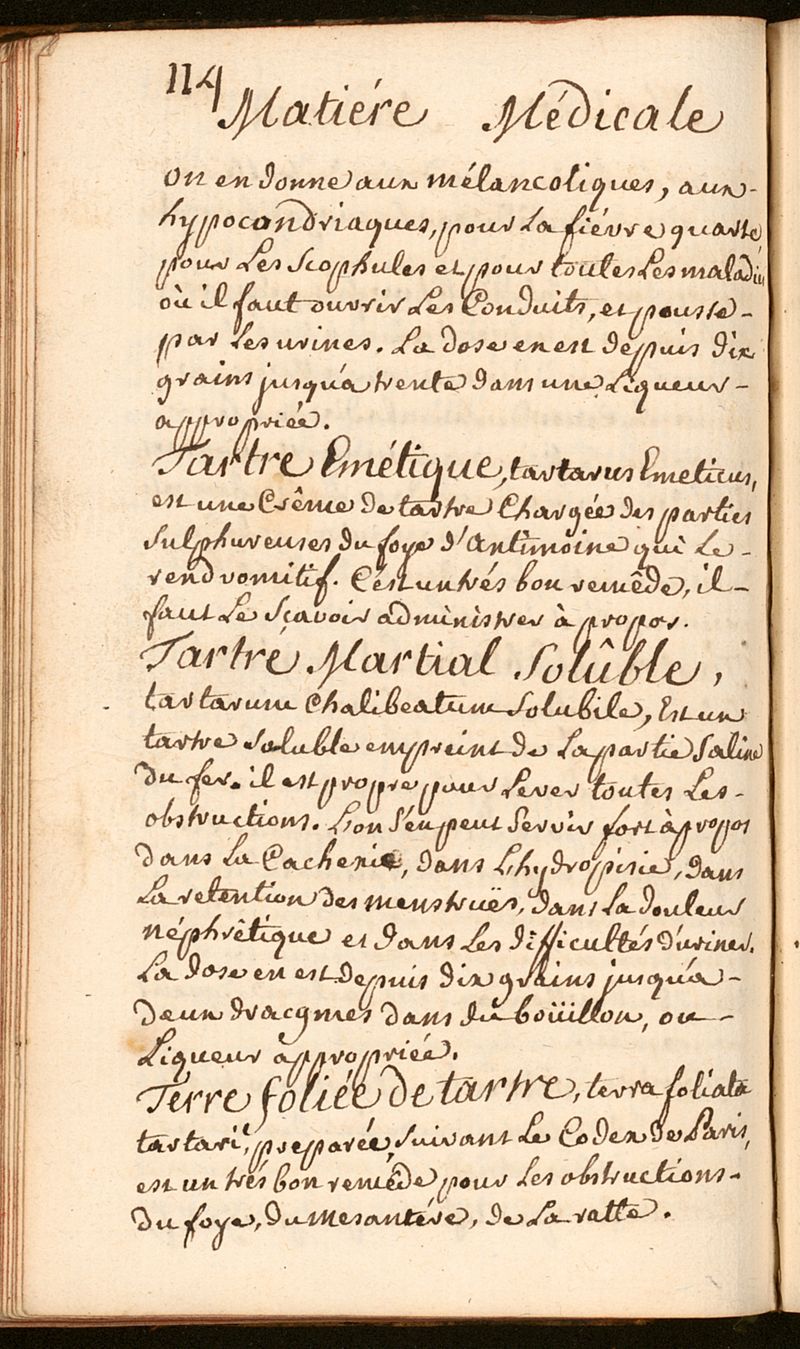 114
Matiére Médicale
on en donne aux mélancoliques, aux-
hypocondriaques, pour La fiévre quarte,
pour Les Scophules et pour toutes Les maladies
où il faut ouvrir Les Conduits, et pousse-
par Les urines. La dose en est depuis dix
grains jusqu'a trente dans une Liqueur-
appropriée.
Tartre Emétique, tartarus Emeticus,
est une Crême de tartre Chargée des parties
Sulphureuses du foye d'Antimoine qui Le-
rend vomitif. C'est un trés bon remêde, il-
faut Le Sçavoir administrer à propos.
Tartre Martial Solûble,
tartarum Chalibeatum Solubile, Est un
tartre Soluble empreint de La partie Saline
du fer. il est propre pour Lever toutes Les-
obstructions. L'on S'en peut Servir fort à propos
dans La Cachexie, dans L'hydropisie, dans
La retention des menstruës, dans La douleur
néphrêtique et dans Les difficultés d'uriner.
La dose en est depuis dix grains jusqu'a-
deux dracgmes dans du boüillon, ou-
Liqueur appropriée.
Terre foliée de tartre, terra foliata
tartari, preparée, Suivant Le Codex de Paris,
est un trés bon remêde pour Les obstructions-
du foye, du mesantére, de La ratte.